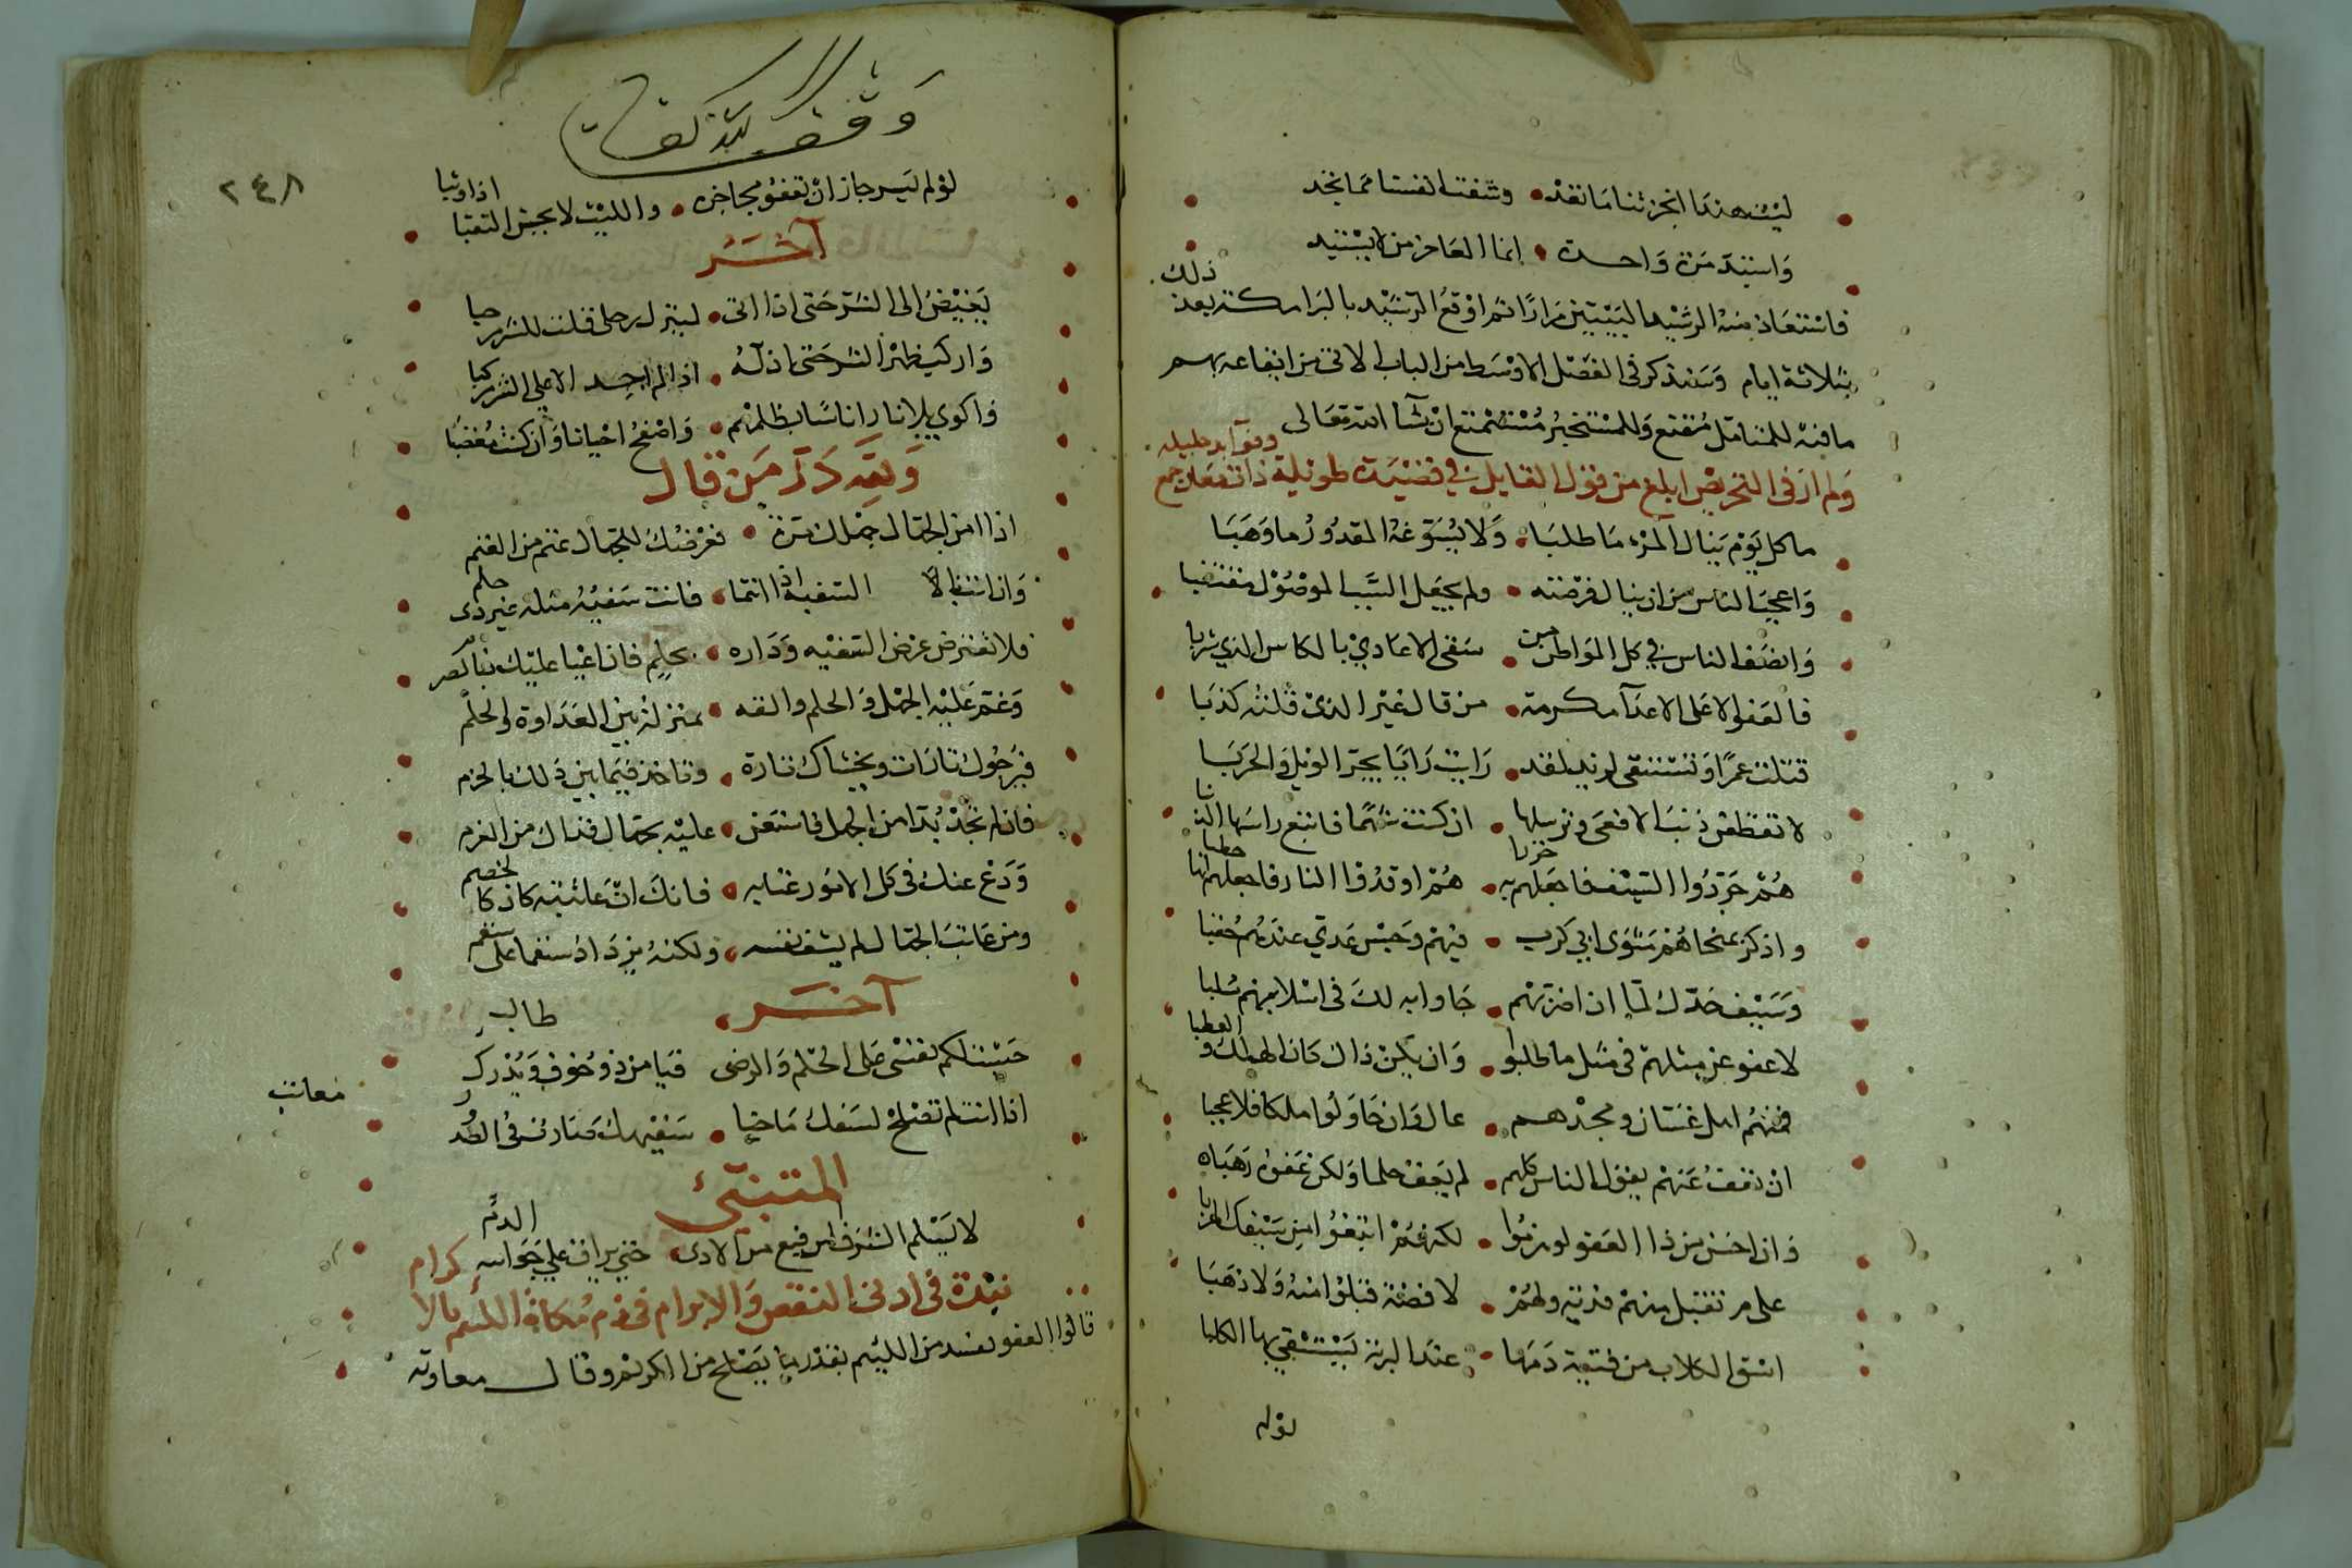 ليت هندا انجزتنا ما تعد • وشفت انفسنا مما نجد
واستبد مرة واحدة • انما العاجز من لا يستبد
فاستعاد منه الرشيد البيتين مرارا ثم اوقع الرشيد بالبرامكة بعد ذلك
بثلاثة ايام وسنذكر في الفصل الاوسط من الباب الاتي من ايقاعه بهم
ما فيه للمتامل مقنع وللمستخبر مستمتع ان شا الله تعالى
ولم ار في التحريض ابلغ من قول القايل في قصيدة طويلة ذات معان جمع وفوايد جليله
ما كل يوم ينال المرء ما طلبا • ولا يسوغه المقدور ما وهبا
واعجب الناس من ان ينال فرصته • ولم يجعل السبب الموصول مقتضبا
وانصف الناس في كل المواطن من • سقى الاعادي بالكاس الذي شربا
فالعفو الا على الاعدا مكرمة • من قال غير الذي قلته كذبا
قتلت عمرا وتستبقي يزيد لقد • رايت رايا يجر الويل والحربا
لا تقطعن ذنب الافعى وترسلها • ان كنت شهما فاتبع راسها الذنبا
هم جردوا السيف فاجعلهم به جزرا • هم اوقدوا النار فاجعلهم لها حطبا
واذكر بمنحاهم مثوى ابي كرب • فيهم وحبس عدي عندهم حقبا
وسيف جدك لما ان اضربهم • جاوا به لك في اسلابهم سلبا
لا عفو عن مثلهم في مثل ما طلبوا • وان يكن ذاك كان الهلك والعطبا
فمنهم اهل غسان ومجدهم • عال وان حاولوا ملكا فلا عجبا
ان تعف عنهم يقول الناس كلهم • لم يعف حلما ولكن عفوه رهباه
وان احسن من ذا العفو لو هزموا • لكنهم اتبعوا من سيفك الهربا
على م تقبل منهم فدية ولهم • لا فضة قبلوا منه ولا ذهبا
اسق الكلاب من فتية دمها • عند البرية يستشفي بها الكلبا
لولم
وقف لله تعالى
٢٤٨
لولم يسر جاز ان تعفو مجاخرة • والليث لا يحسن التقيا اذا وثبا
آخر
يغيض الى الشر حتى اذا اتى • لينزل رحلي قلت للشر مرحبا
واركب ظهر الشر حتى اذله • اذا لم اجد الا على الشر مركبا
واكوي بلا نار اناسا بظلمهم • واصفح احيانا وان كنت مغضبا
ولله در من قال
اذا امن الجهال جهلك مرة • فعرضك للجهال غنم من الغنم
وان انت لا السفيه اذا انتما • فانت سفيه مثله غير ذي حلم
فلا تعترض عرض السفيه وداره • بحلم فان اعيا عليك فبالصرم
وعم عليه الجهل والحلم والقه • بمنزلة بين العداوة والحلم
فيرجوك تارات ويخشاك تارة • وتاخذ فيما بين ذلك بالحزم
فان لم تجد بدا من الجهل فاستعن • عليه بجهال فذاك من العزم
ودع عنك في كل الامور عتابه • فانك ان عاتبته كان كالخصم
ومن عاتب الجهال لم يشف نفسه • ولكنه يزداد سقما على سقم
آخر
حبست لكم نفسي على الحلم والرضى قيا من ذو خوف ويذرك طالب
اذا انت لم تفلح لسفك ما ضيا • سفيهك صارت في الصد
معاتب
المتنبئ
لا يسلم الشرف الرفيع من الاذى • حتى يراق على جوانبه الدم
نبذة في اولي النقض والابرام في ذم مكافاة اللئيم بالا كرام
قالوا العفو يفسد من اللئيم بقدر ما يصلح من الكريم وقال معاوية